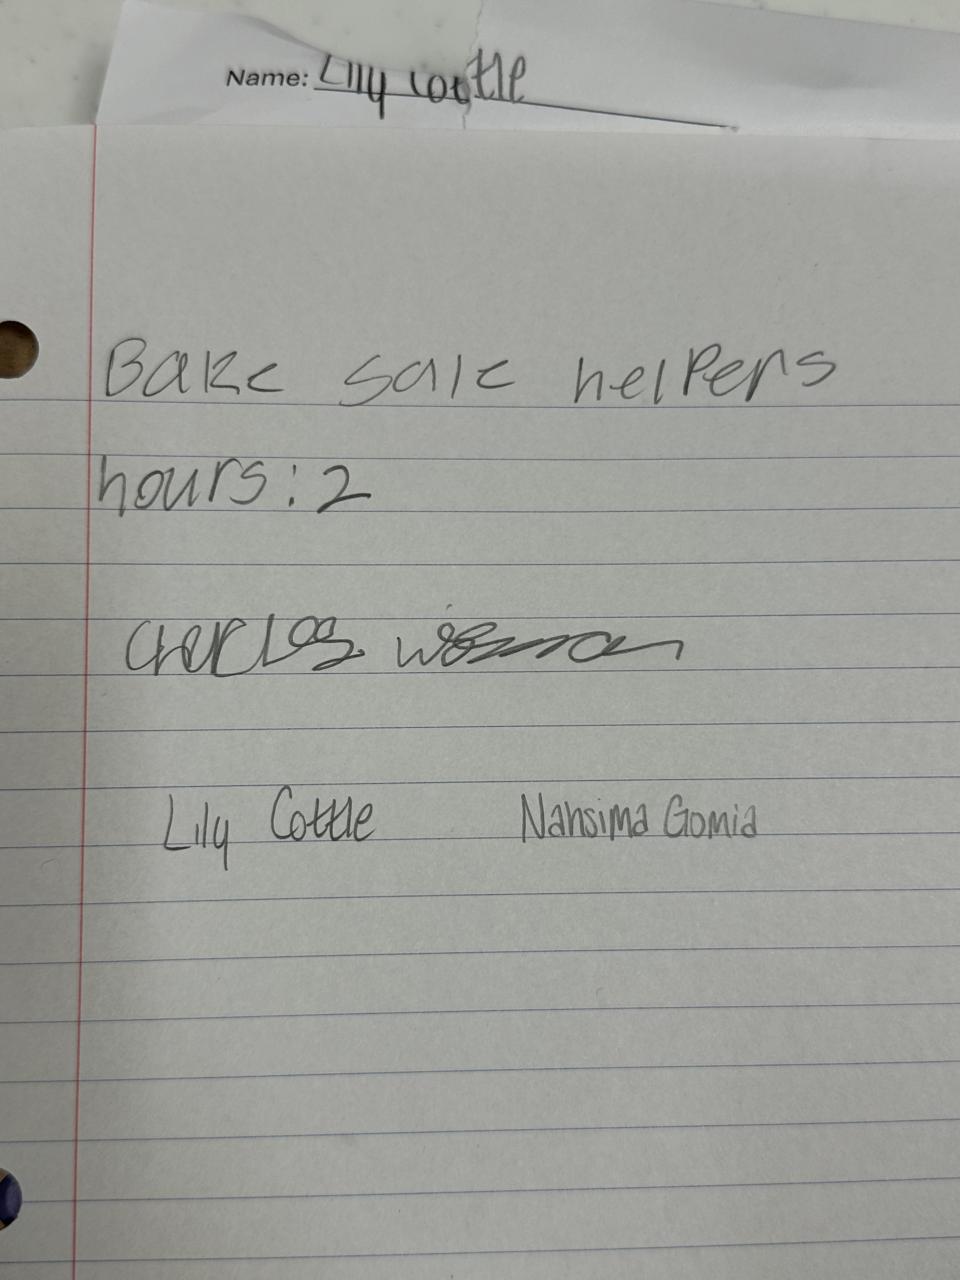 Name: Lily Cottle
Bake sale helpers
hours: 2
Lily Cottle Nahsima Gomia